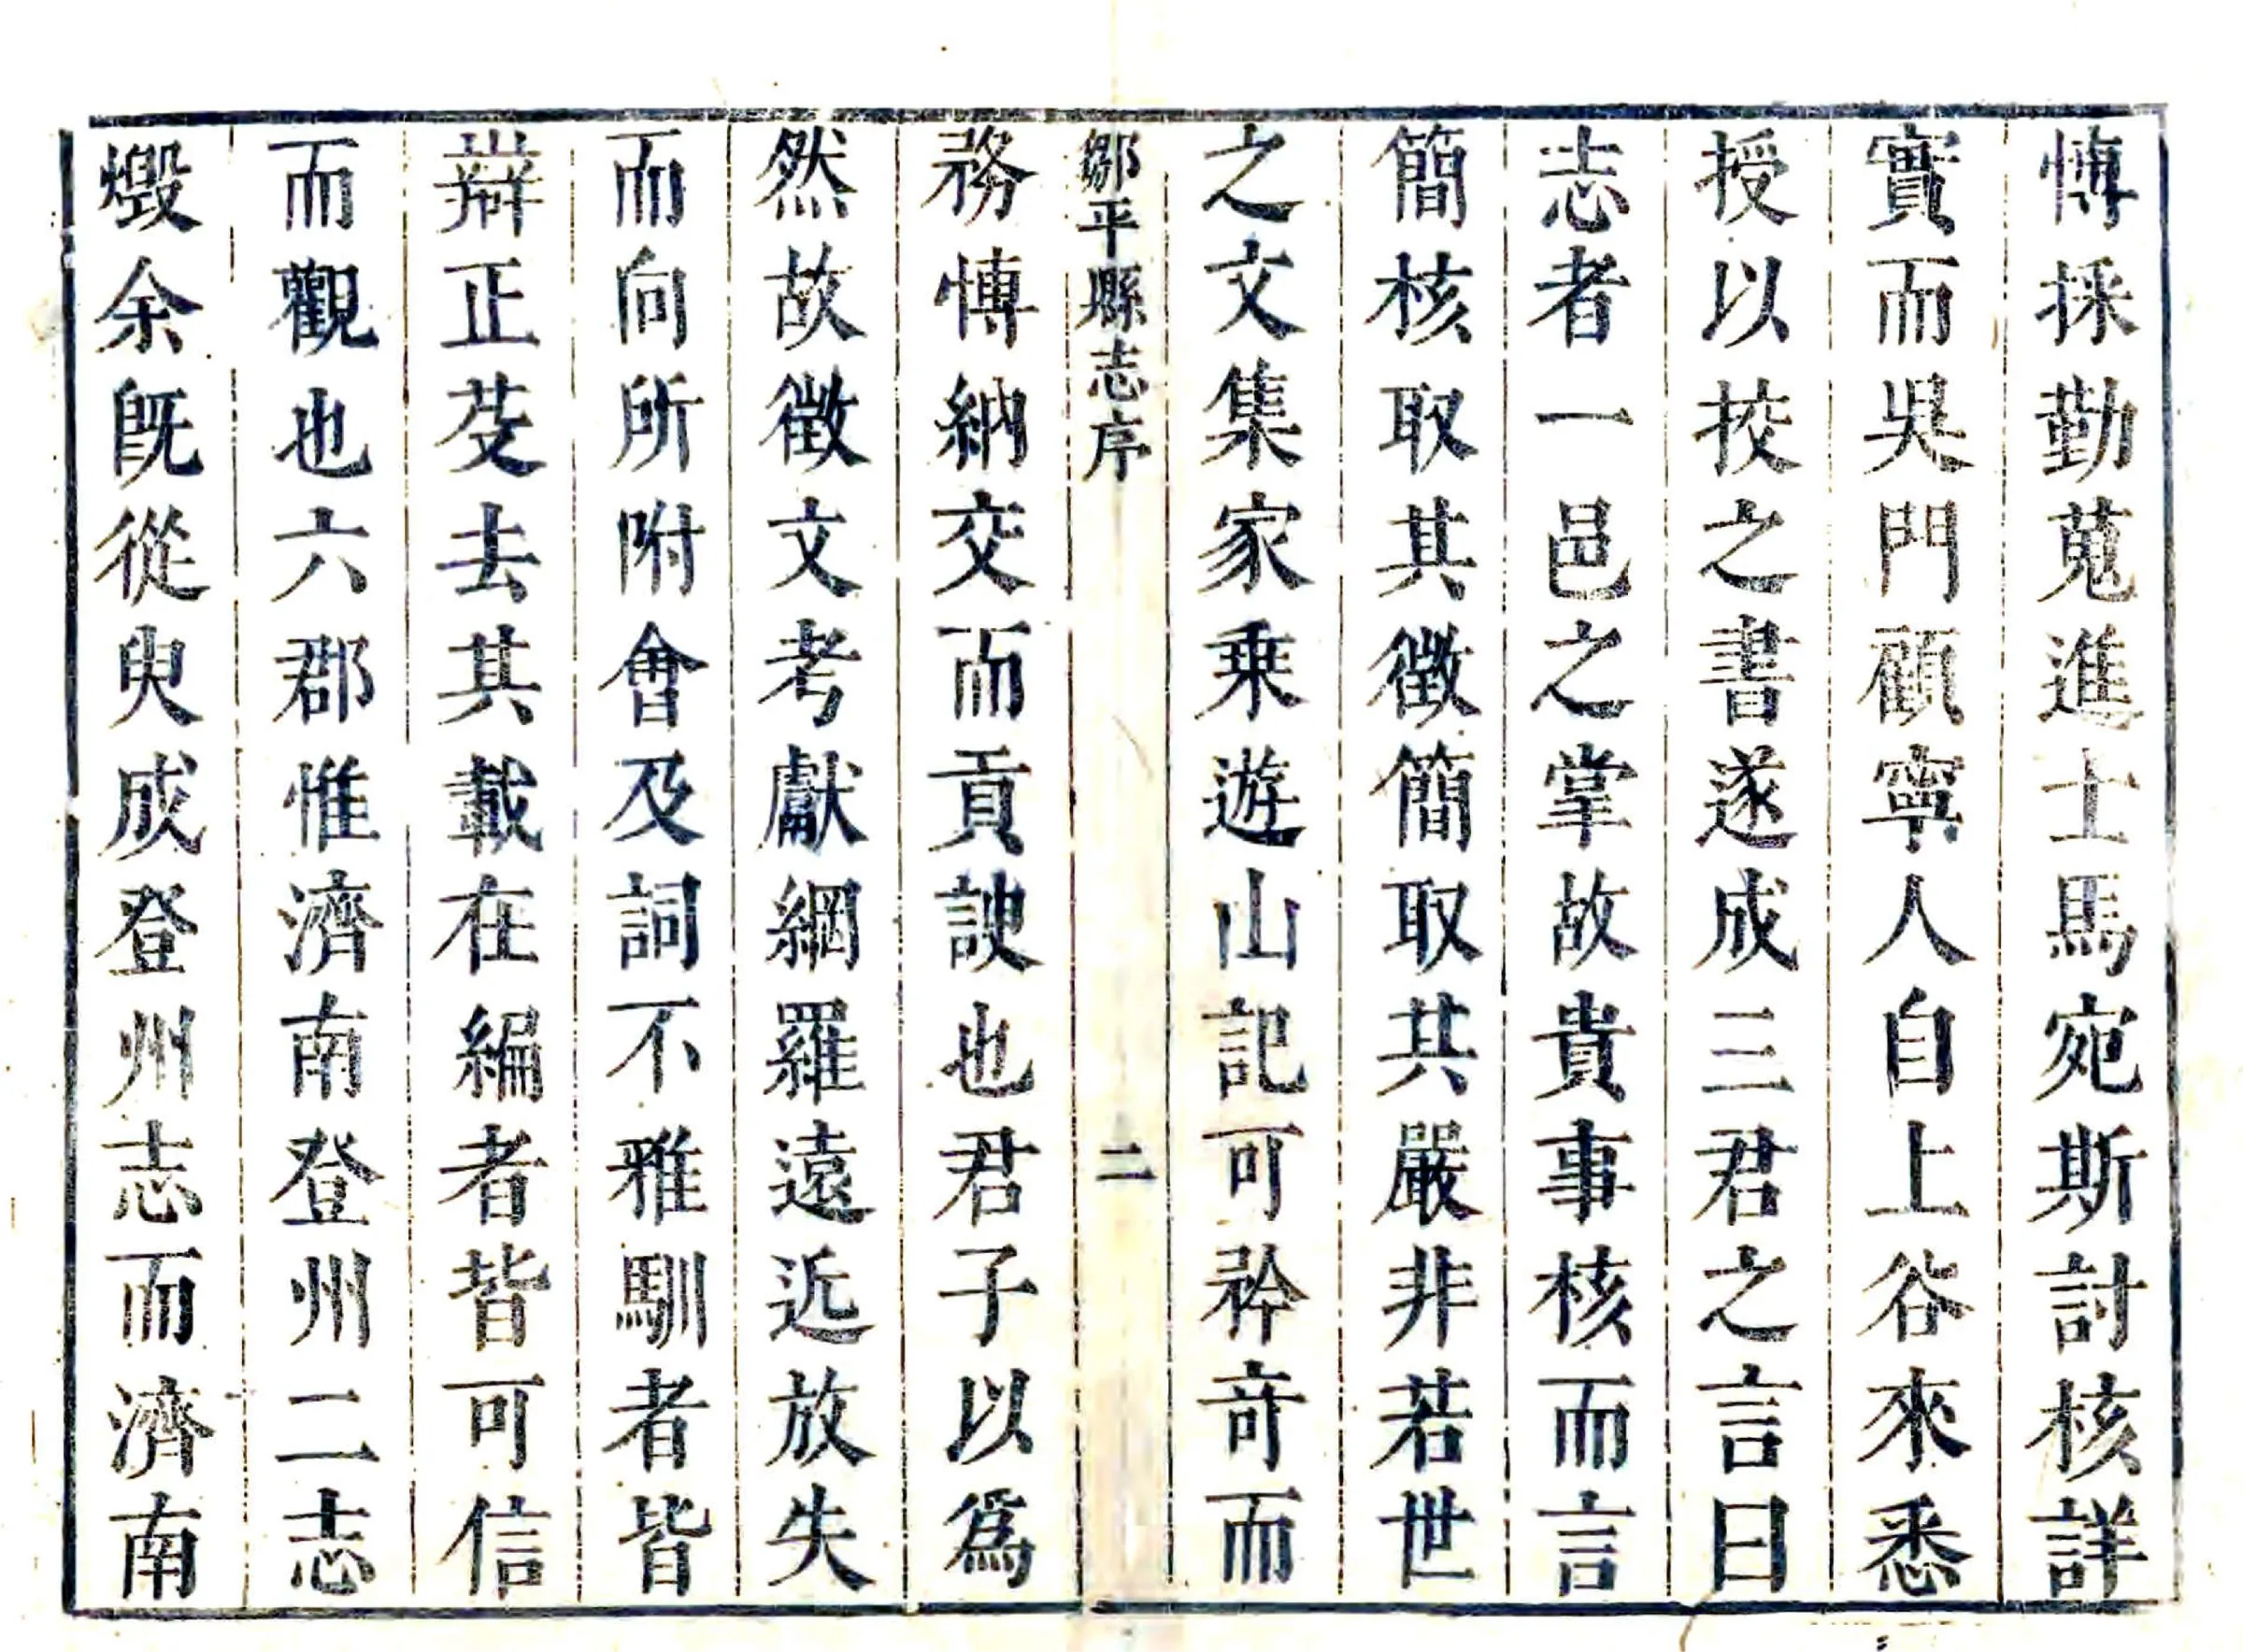 愽採勤蒐進士馬宛斯討核詳
實而吳門顧寧人自上谷來悉
授以挍之書遂成三君之言曰
志者一邑之掌故貴事核而言
簡核取其徵簡取其嚴非若世
之文集家乗遊山記可矜竒而
鄒平縣志序 二
務愽納交而貢諛也君子以爲
然故徵文考獻網羅遠近放失
而向所附會及詞不雅馴者皆
辯正芟去其載在編者皆可信
而觀也六郡惟濟南登州二志
燬余旣從臾成登州志而濟南